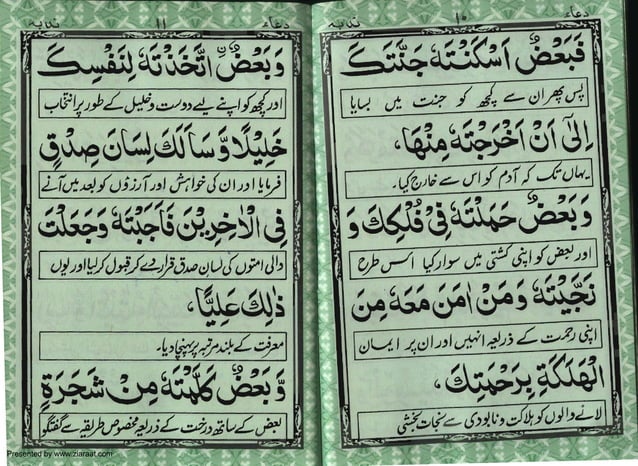 دعائے ۱۰ ندبہ
فَبَعْضٌ اَسْكَنْتَهٗ جَنَّتَكَ
پس پھر ان سے کچھ کو جنت میں بسایا
اِلٰىٓ اَنْ اَخْرَجْتَهٗ مِنْهَا،
یہاں تک کہ آدم کو اس سے خارج کیا۔
وَ بَعْضٌ حَمَلْتَهٗ فِىْ فُلْكِكَ وَ
اور بعض کو اپنی کشتی میں سوار کیا اسس طرح
نَجَّيْتَهٗ وَ مَنْ اٰمَنَ مَعَهٗ مِنَ
اپنی رحمت کے ذریعہ انہیں اور ان پر ایمان
الْهَلَكَةِ بِرَحْمَتِكَ،
لانے والوں کو ہلاکت و نابودی سے نجات بخشی
دعائے ۱۱ ندبہ
وَ بَعْضٌ اتَّخَذْتَهٗ لِنَفْسِكَ
اور کچھ کو اپنے لیے دوست و خلیل کے طور پر انتخاب
خَلِيْلًا وَّ سَاَلَكَ لِسَانَ صِدْقٍ
فرمایا اور ان کی خواہش اور آرزؤں کو بعد میں آنے
فِى الْاٰخِرِيْنَ فَاَجَبْتَهٗ وَ جَعَلْتَ
والی امتوں کی لسان صدق قرار دے کر قبول کر لیا اور یوں
ذٰلِكَ عَلِيًّا،
معرفت کے بلند مرتبہ پر پہنچا دیا۔
وَّ بَعْضٌ كَلَّمْتَهٗ مِنْ شَجَرَةٍ
بعض کے ساتھ درخت کے ذریعہ مخصوص طریقہ سے گفتگو
Presented by www.ziaraat.com